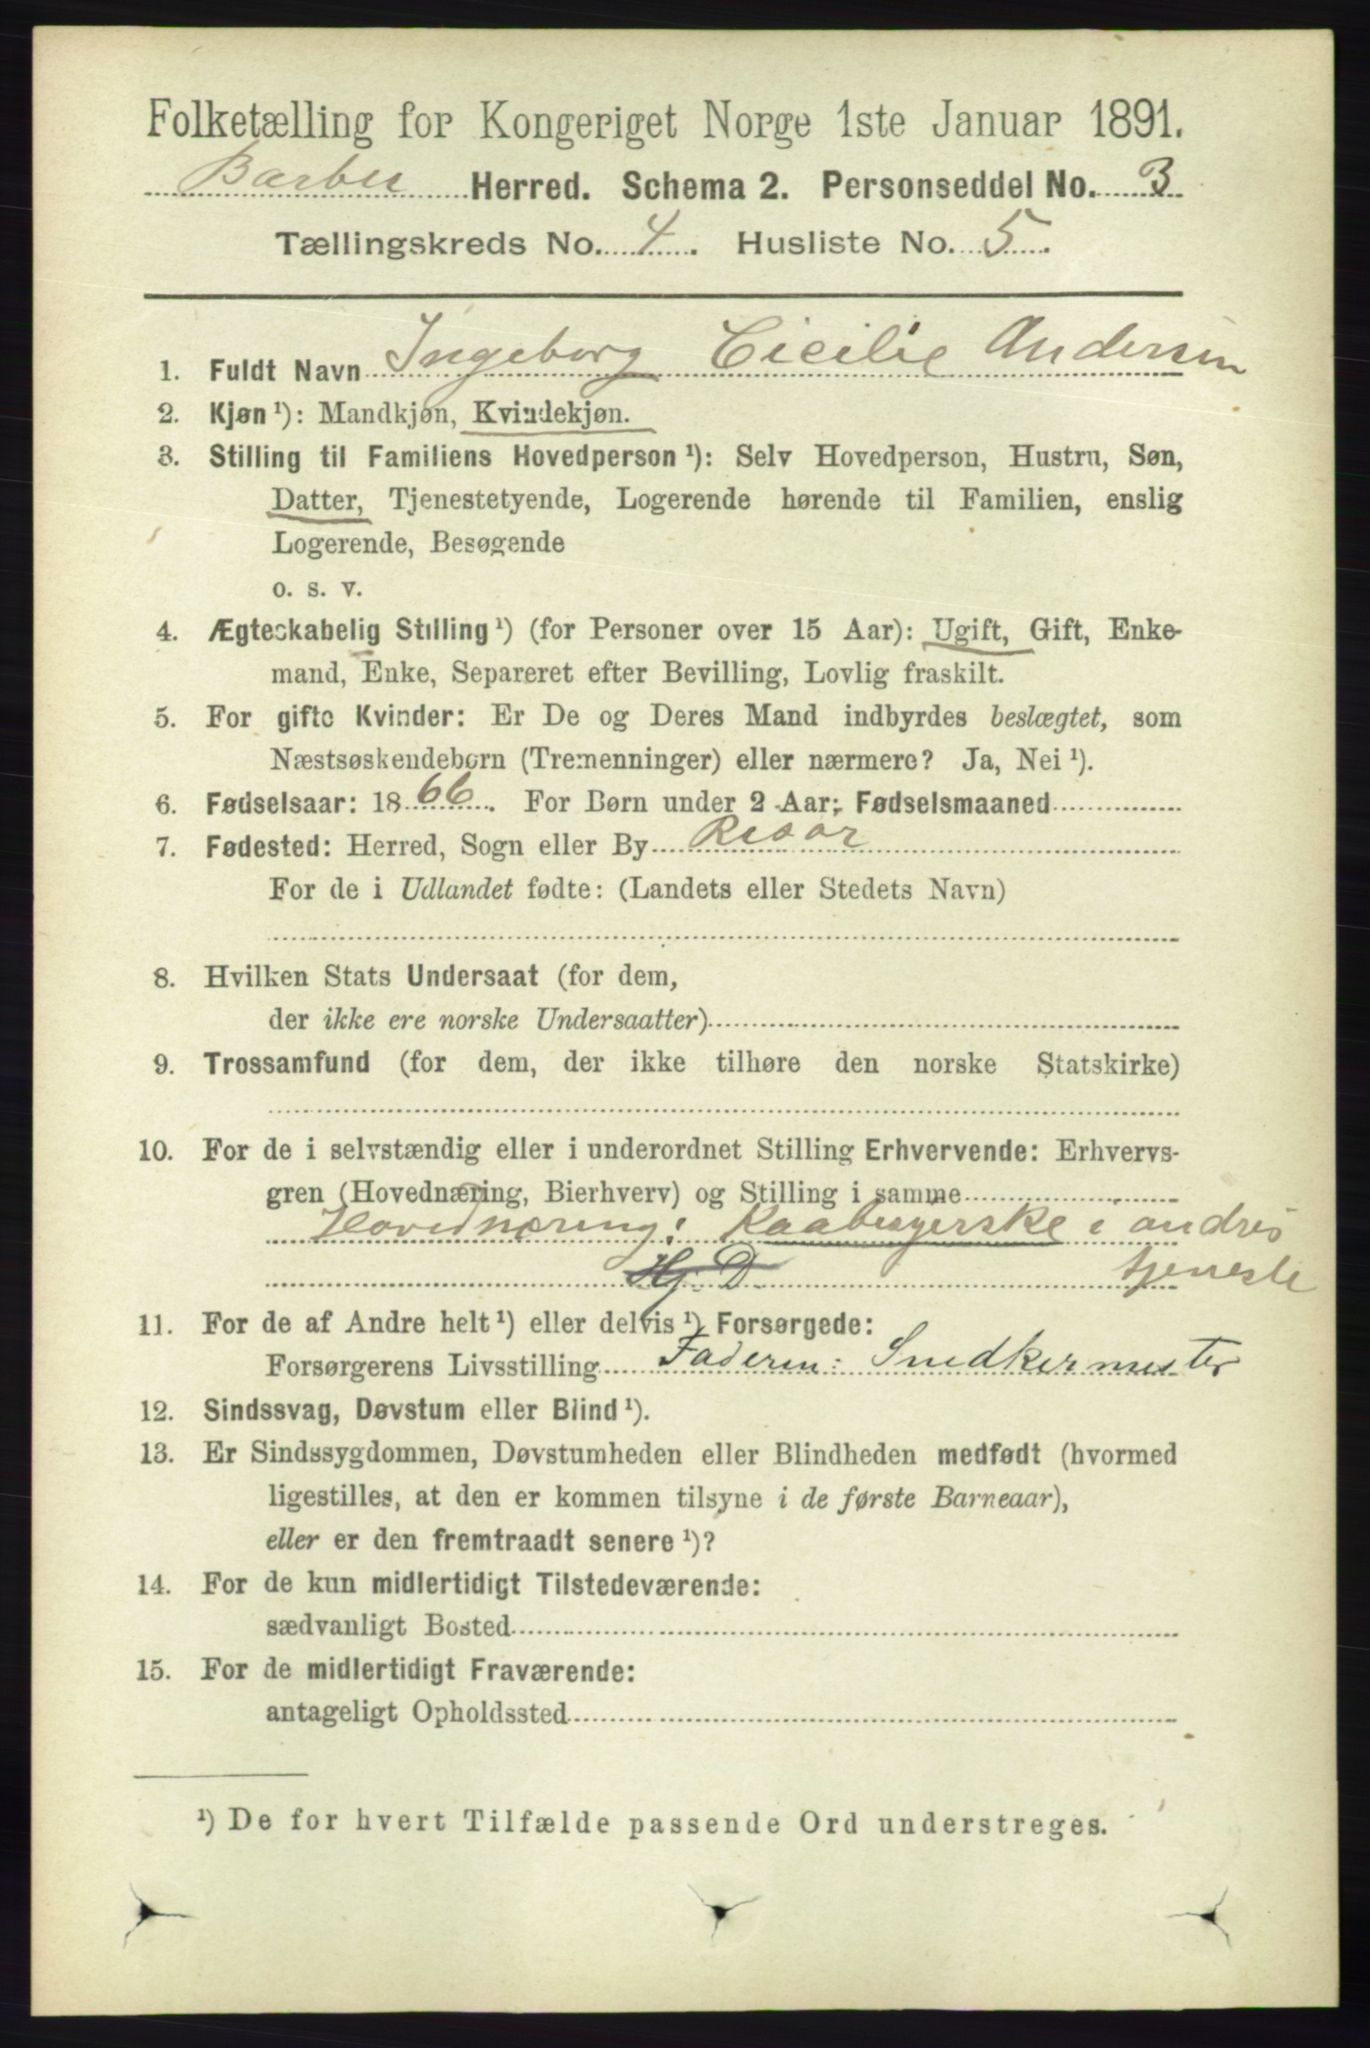 Folketælling for Kongeriget Norge 1ste Januar 1891.
Barbu Herred. Schema 2. Personseddel No. 3
Tællingskreds No. 4. Husliste No. 5.
1. Fuldt Navn Ingeborg Cicilie Andersen
2. Kjøn ¹): Mandkjøn, Kvindekjøn.
3. Stilling til Familiens Hovedperson ¹): Selv Hovedperson, Hustru, Søn,
Datter, Tjenestetyende, Logerende hørende til Familien, enslig
Logerende, Besøgende
o. s. v.
4. Ægteskabelig Stilling ¹) (for Personer over 15 Aar): Ugift, Gift, Enke-
mand, Enke, Separeret efter Bevilling, Lovlig fraskilt.
5. For gifte Kvinder: Er De og Deres Mand indbyrdes beslægtet, som
Næstsøskendebørn (Tremenninger) eller nærmere? Ja, Nei ¹).
6. Fødselsaar: 1866. For Børn under 2 Aar: Fødselsmaaned
7. Fødested: Herred, Sogn eller By Resør
For de i Udlandet fødte: (Landets eller Stedets Navn)
8. Hvilken Stats Undersaat (for dem,
der ikke ere norske Undersaatter)
9. Trossamfund (for dem, der ikke tilhøre den norske Statskirke)
10. For de i selvstændig eller i underordnet Stilling Erhvervende: Erhvervs-
gren (Hovednæring, Bierhverv) og Stilling i samme
Hovednæring: Kaabesyerske i andres
Hj. D tjeneste
11. For de af Andre helt ¹) eller delvis ¹) Forsørgede:
Forsørgerens Livsstilling Faderen: Snedkermester
12. Sindssvag, Døvstum eller Blind ¹).
13. Er Sindssygdommen, Døvstumheden eller Blindheden medfødt (hvormed
ligestilles, at den er kommen tilsyne i de første Barneaar),
eller er den fremtraadt senere ¹)?
14. For de kun midlertidigt Tilstedeværende:
sædvanligt Bosted
15. For de midlertidigt Fraværende:
antageligt Opholdssted
¹) De for hvert Tilfælde passende Ord understreges.